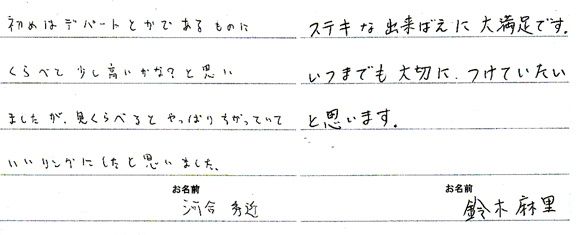 初めはデパートとかであるものに
くらべて少し高いかな？と思い
ましたが、見くらべるとやっぱりちがっていて
いいリングにしたと思いました。
お名前
河合 秀近
ステキな出来ばえに大満足です。
いつまでも大切に、つけていたい
と思います。
お名前
鈴木麻里